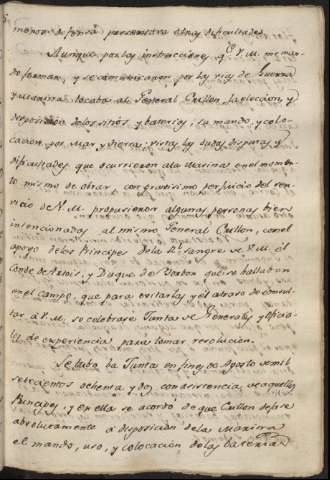 menor de fondo, para encontrar estas dificultades.
Aunque por las instrucciones, qe. V. M. me man-
do formar, y se comunicaron por las vias de Guerra
y Marina tocaba al General Crillon, la eleccion, y
disposicion de los sitios, y baterias, su mando, y colo-
cacion por Mar, y tierra; vistas las dudas disputas y
dificultades que ocurrieron a la Marina en el momen-
to mismo de obrar con gravisimo perjuicio del ser-
vicio de V. M. propusieron algunas personas bien
intencionadas al mismo General Crillon, con el
apoyo de los Principes de la Rl. sangre de V. M. el
Conde de Artois, y Duque de Borbon que se hallaban
en el campo, que para evitarlas y el atraso de consul-
tar à V. M. se celebrase Junta de Generales, y oficia-
les de experiencia para tomar resolucion.
Se tubo la Junta en fines de Agosto de mil
setecientos ochenta y dos, con asistencia de aquellos
Principes, y en ella se acordó de que Crillon dejase
absolutamente á disposicion de la Marina
el mando, uso, y colocacion de las baterias